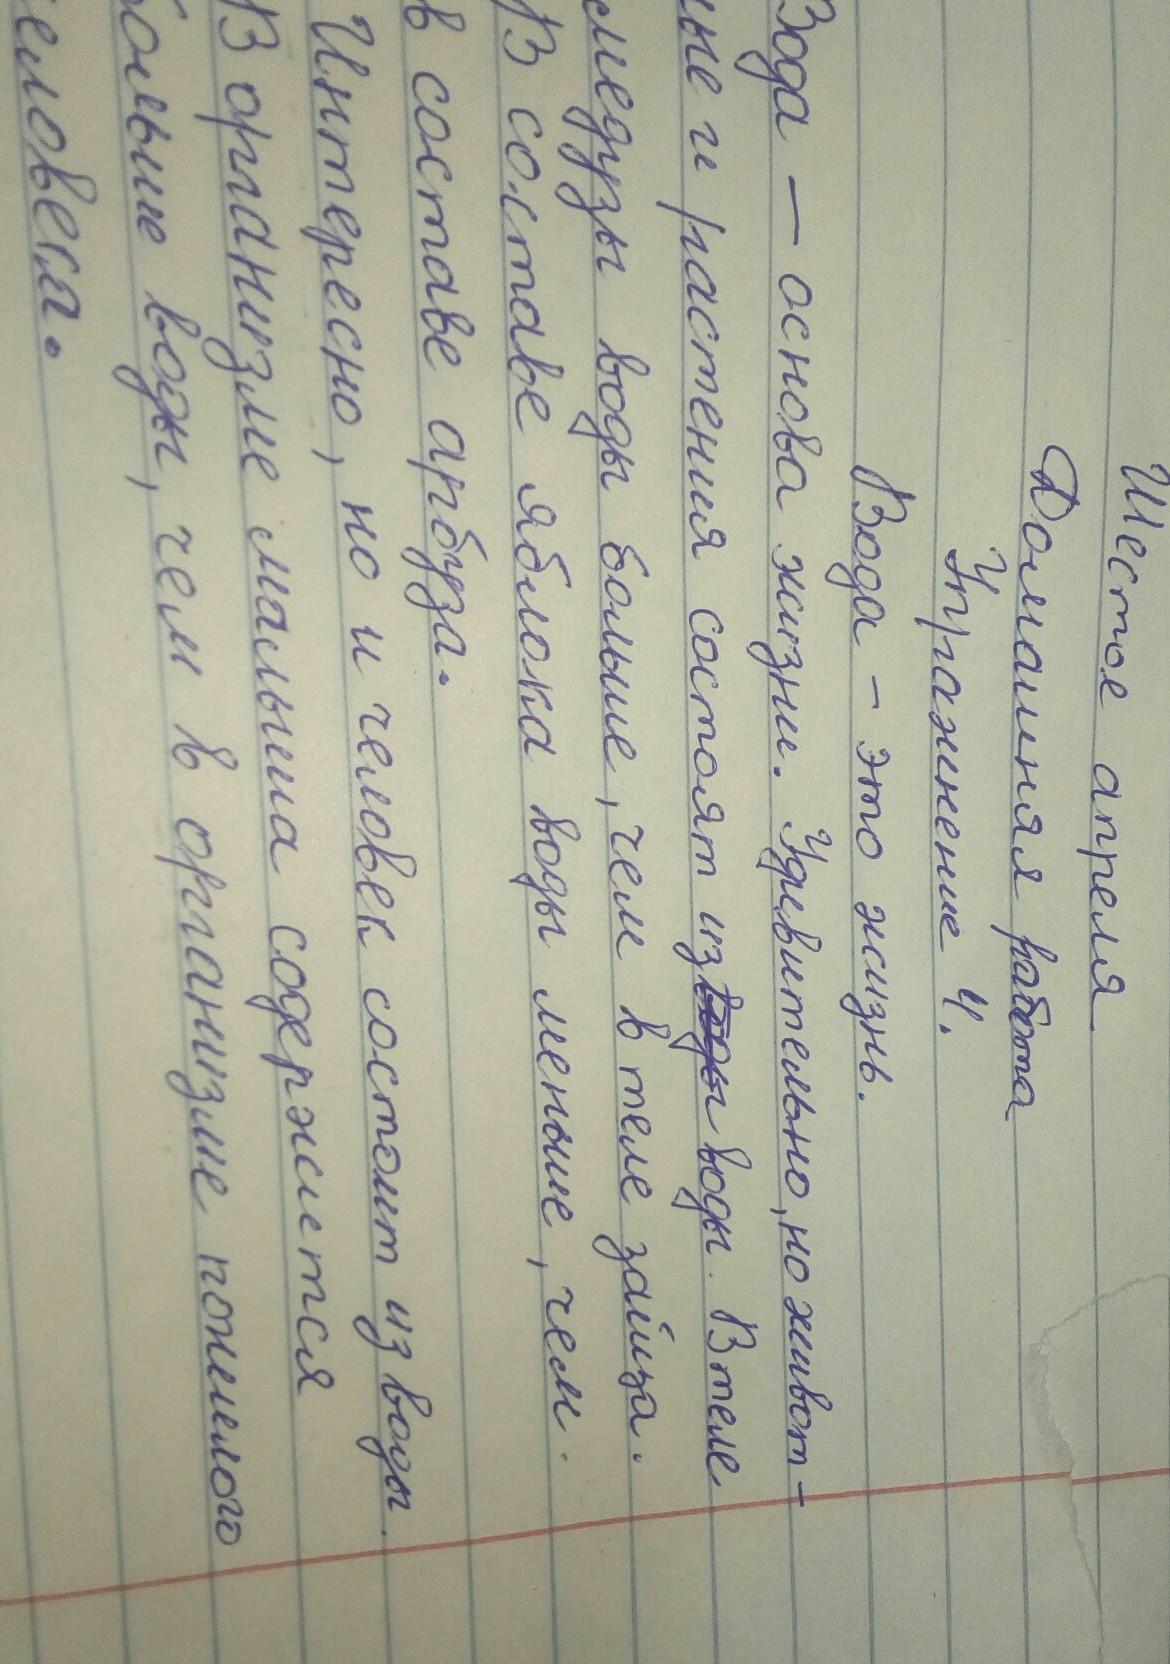 Шестое апреля
Домашняя работа
Упражнение 4.
Вода - это жизнь.
Вода — основа жизни. Удивительно, но живот-
ные и растения состоят из воды воды. В теле
медузы воды больше, чем в теле зайца.
В составе яблока воды меньше, чем
в составе арбуза.
Интересно, но и человек состоит из воды.
В организме малыша содержится
больше воды, чем в организме пожилого
человека.